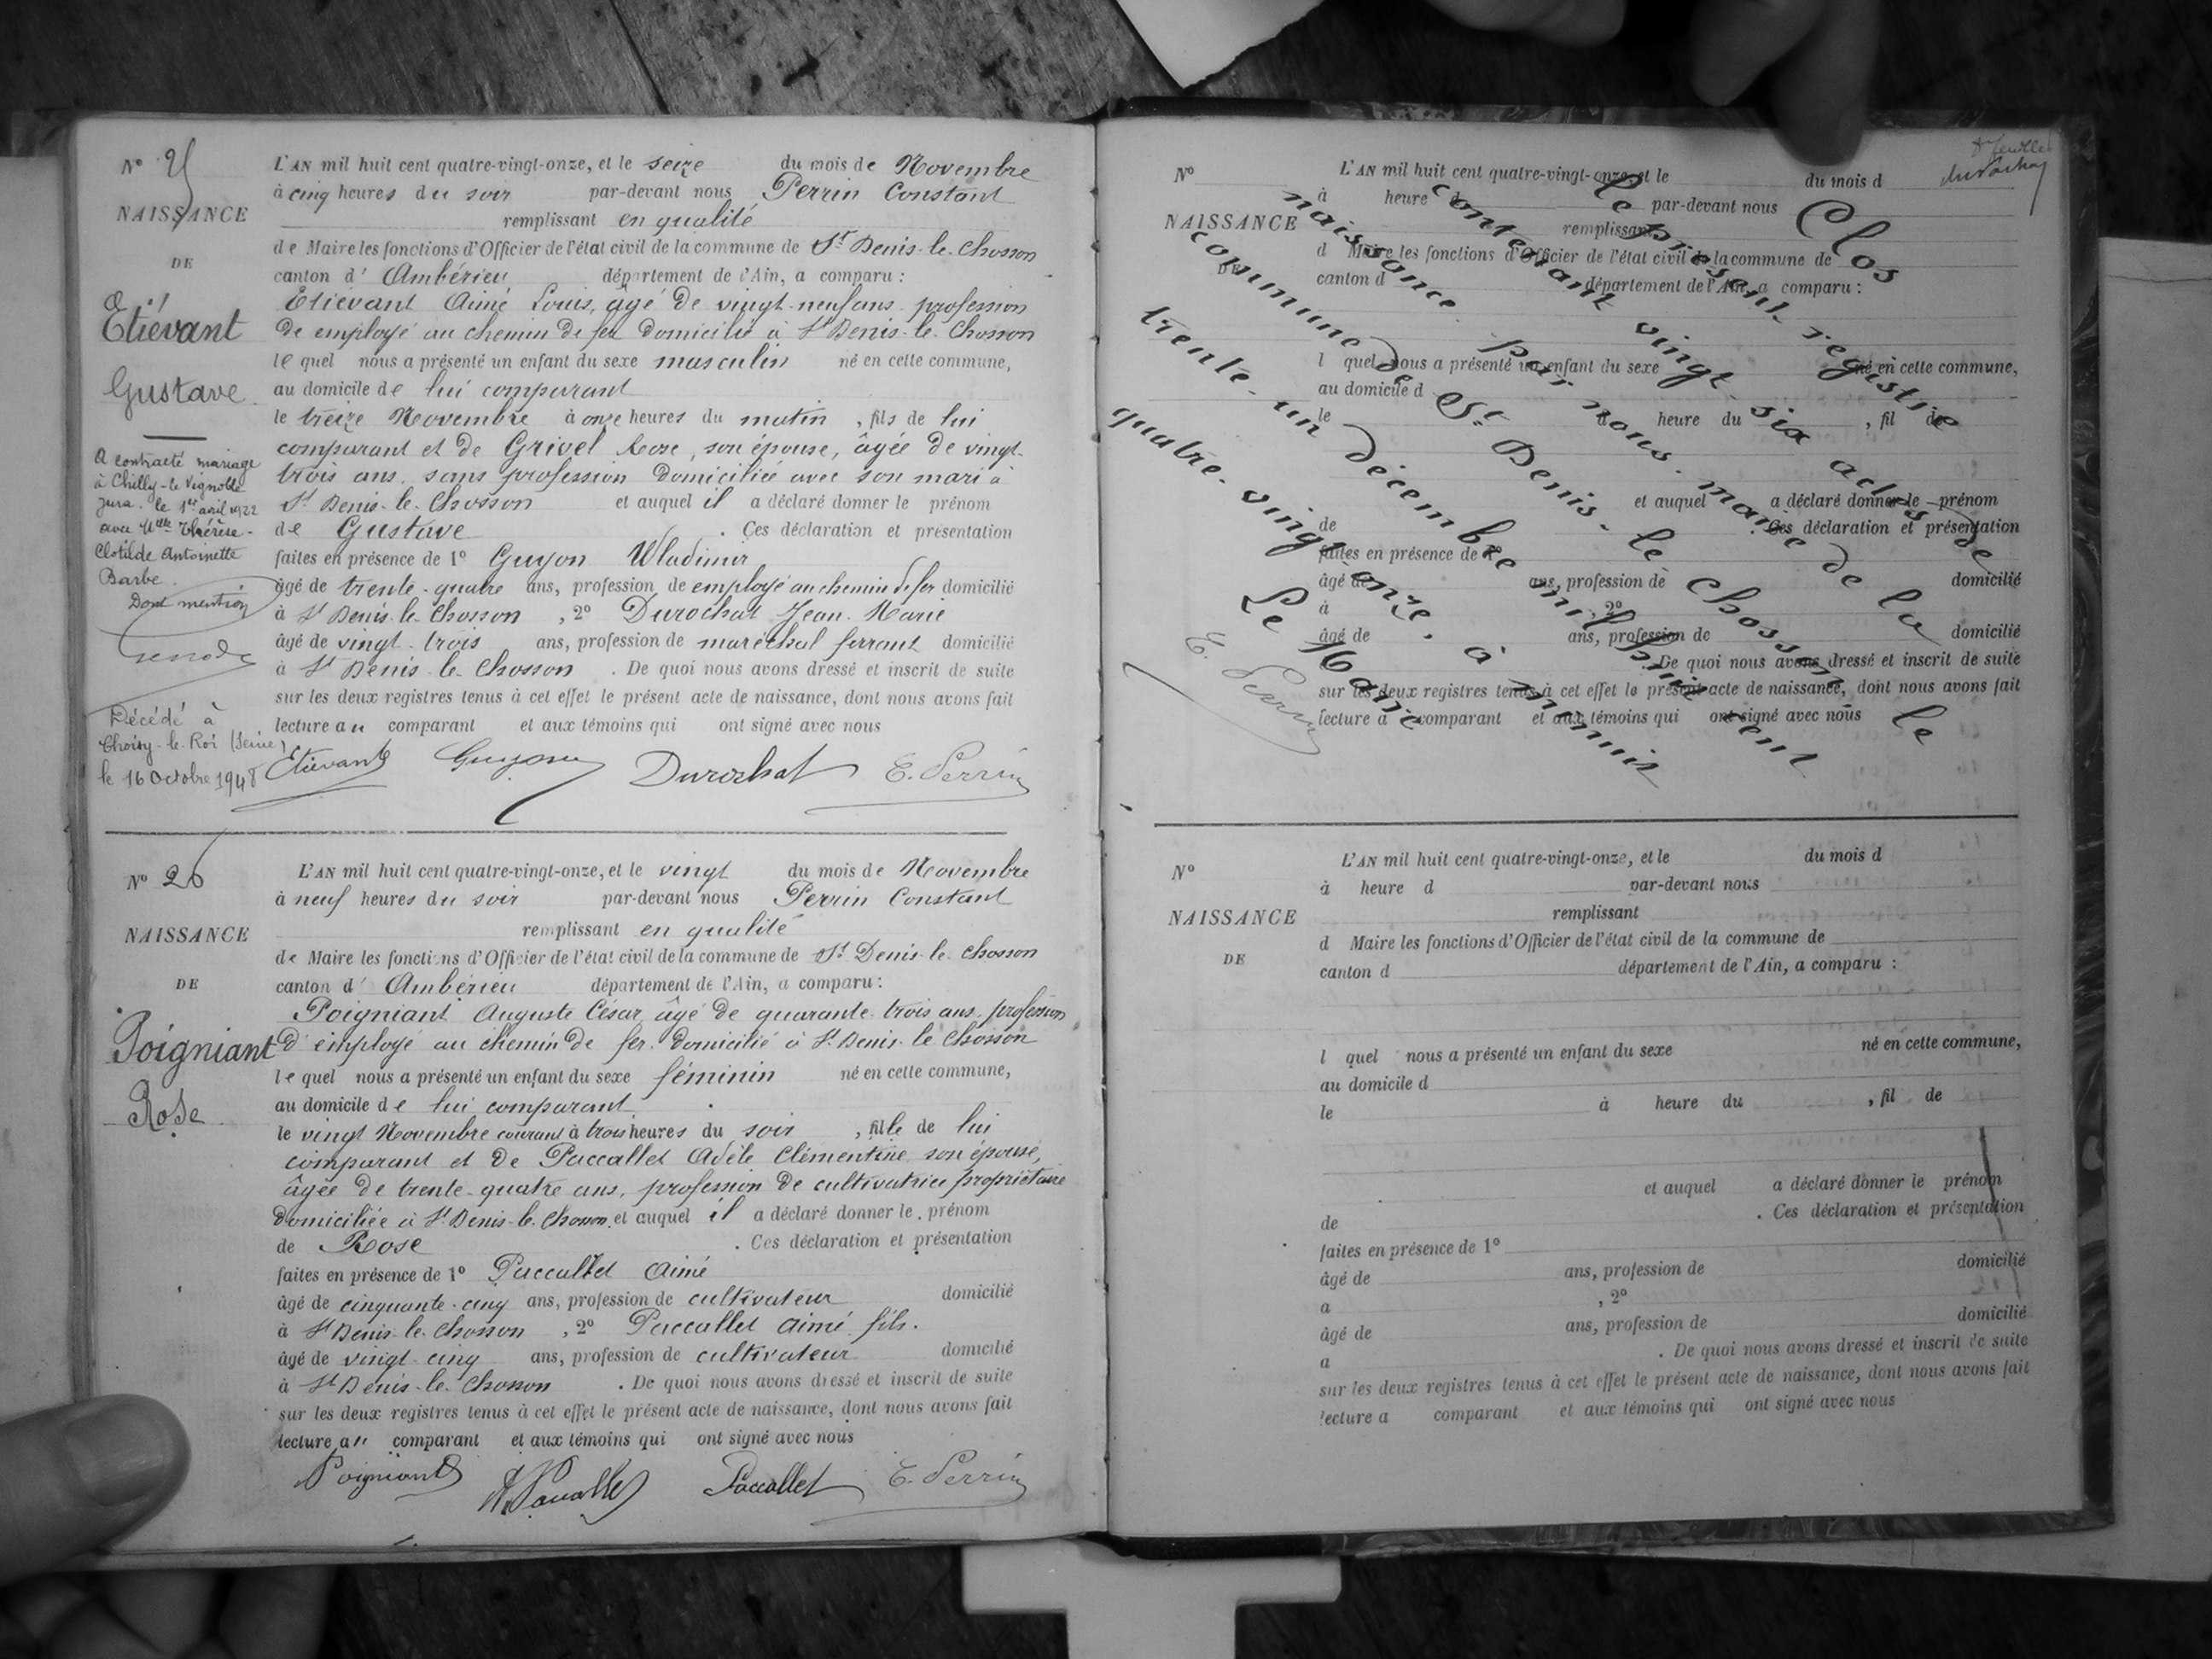 N° 25
NAISSANCE
DE
Etiévant
Gustave
A contracté mariage
à Chilly-le-Vignoble
Jura. le 1er avril 1922
avec Melle Thérèse-
Clotilde Antoinette
Barbe.
Dont mention
Décédé à
Choisy-le-Roi (Seine)
le 16 Octobre 1948
L'AN mil huit cent quatre-vingt-onze, et le seize du mois de Novembre
à cinq heures du soir par-devant nous Perrin Constant
remplissant en qualité
de Maire les fonctions d'Officier de l'état civil de la commune de St Denis-le-Chosson
canton d'Ambérieu département de l'Ain, a comparu :
Etiévant Aimé Louis, âgé de vingt-neuf ans, profession
de employé au chemin de fer domicilié à St Denis-le-Chosson
lequel nous a présenté un enfant du sexe masculin né en cette commune,
au domicile de lui comparant
le treize Novembre à onze heures du matin, fils de lui
comparant et de Grivel Rose, son épouse, âgée de vingt-
trois ans, sans profession domiciliée avec son mari à
St Denis-le-Chosson et auquel il a déclaré donner le prénom
de Gustave. Ces déclaration et présentation
faites en présence de 1° Guyon Wladimir
âgé de trente-quatre ans, profession de employé au chemin de fer domicilié
à St Denis-le-Chosson, 2° Durochat Jean-Marie
âgé de vingt-trois ans, profession de maréchal ferrant domicilié
à St Denis-le-Chosson. De quoi nous avons dressé et inscrit de suite
sur les deux registres tenus à cet effet le présent acte de naissance, dont nous avons fait
lecture au comparant et aux témoins qui ont signé avec nous
Etievant Guyon Durochat E. Perrin
N° 26
NAISSANCE
DE
Poigniant
Rose
L'AN mil huit cent quatre-vingt-onze, et le vingt du mois de Novembre
à neuf heures du soir par-devant nous Perrin Constant
remplissant en qualité
de Maire les fonctions d'Officier de l'état civil de la commune de St Denis-le-Chosson
canton d'Ambérieu département de l'Ain, a comparu :
Poigniant Auguste César, âgé de quarante-trois ans, profession
d'employé au chemin de fer, domicilié à St Denis-le-Chosson
lequel nous a présenté un enfant du sexe féminin né en cette commune,
au domicile de lui comparant
le vingt Novembre courant à trois heures du soir, fille de lui
comparant et de Paccallet Adèle Clémentine, son épouse,
âgée de trente-quatre ans, profession de cultivatrice propriétaire
domiciliée à St Denis-le-Chosson, et auquel il a déclaré donner le prénom
de Rose. Ces déclaration et présentation
faites en présence de 1° Paccallet Aimé
âgé de cinquante-cinq ans, profession de cultivateur domicilié
à St Denis-le-Chosson, 2° Paccallet Aimé fils.
âgé de vingt-cinq ans, profession de cultivateur domicilié
à St Denis-le-Chosson. De quoi nous avons dressé et inscrit de suite
sur les deux registres tenus à cet effet le présent acte de naissance, dont nous avons fait
lecture au comparant et aux témoins qui ont signé avec nous
Poigniant Paccallet E. Perrin
N°
NAISSANCE
DE
L'AN mil huit cent quatre-vingt-onze, et le du mois d
à heure d par-devant nous
remplissant
d Maire les fonctions d'Officier de l'état civil de la commune de
canton d département de l'Ain, a comparu :
l quel nous a présenté un enfant du sexe né en cette commune,
au domicile d
le à heure du , fil de
et auquel a déclaré donner le prénom
de . Ces déclaration et présentation
faites en présence de 1°
âgé de ans, profession de domicilié
à , 2°
âgé de ans, profession de domicilié
. De quoi nous avons dressé et inscrit de suite
sur les deux registres tenus à cet effet le présent acte de naissance, dont nous avons fait
lecture a comparant et aux témoins qui ont signé avec nous
Clos
le présent registre
contenant vingt-six actes de
naissance par nous, maire de la
commune de St Denis-le-Chosson le
trente-un décembre mil huit cent
quatre-vingt onze, à minuit
Le Maire
E. Perrin
N°
NAISSANCE
DE
L'AN mil huit cent quatre-vingt-onze, et le du mois d
à heure d par-devant nous
remplissant
d Maire les fonctions d'Officier de l'état civil de la commune de
canton d département de l'Ain, a comparu :
l quel nous a présenté un enfant du sexe né en cette commune,
au domicile d
le à heure du , fil de
et auquel a déclaré donner le prénom
de . Ces déclaration et présentation
faites en présence de 1°
âgé de ans, profession de domicilié
a , 2°
âgé de ans, profession de domicilié
a . De quoi nous avons dressé et inscrit de suite
sur les deux registres tenus à cet effet le présent acte de naissance, dont nous avons fait
lecture a comparant et aux témoins qui ont signé avec nous